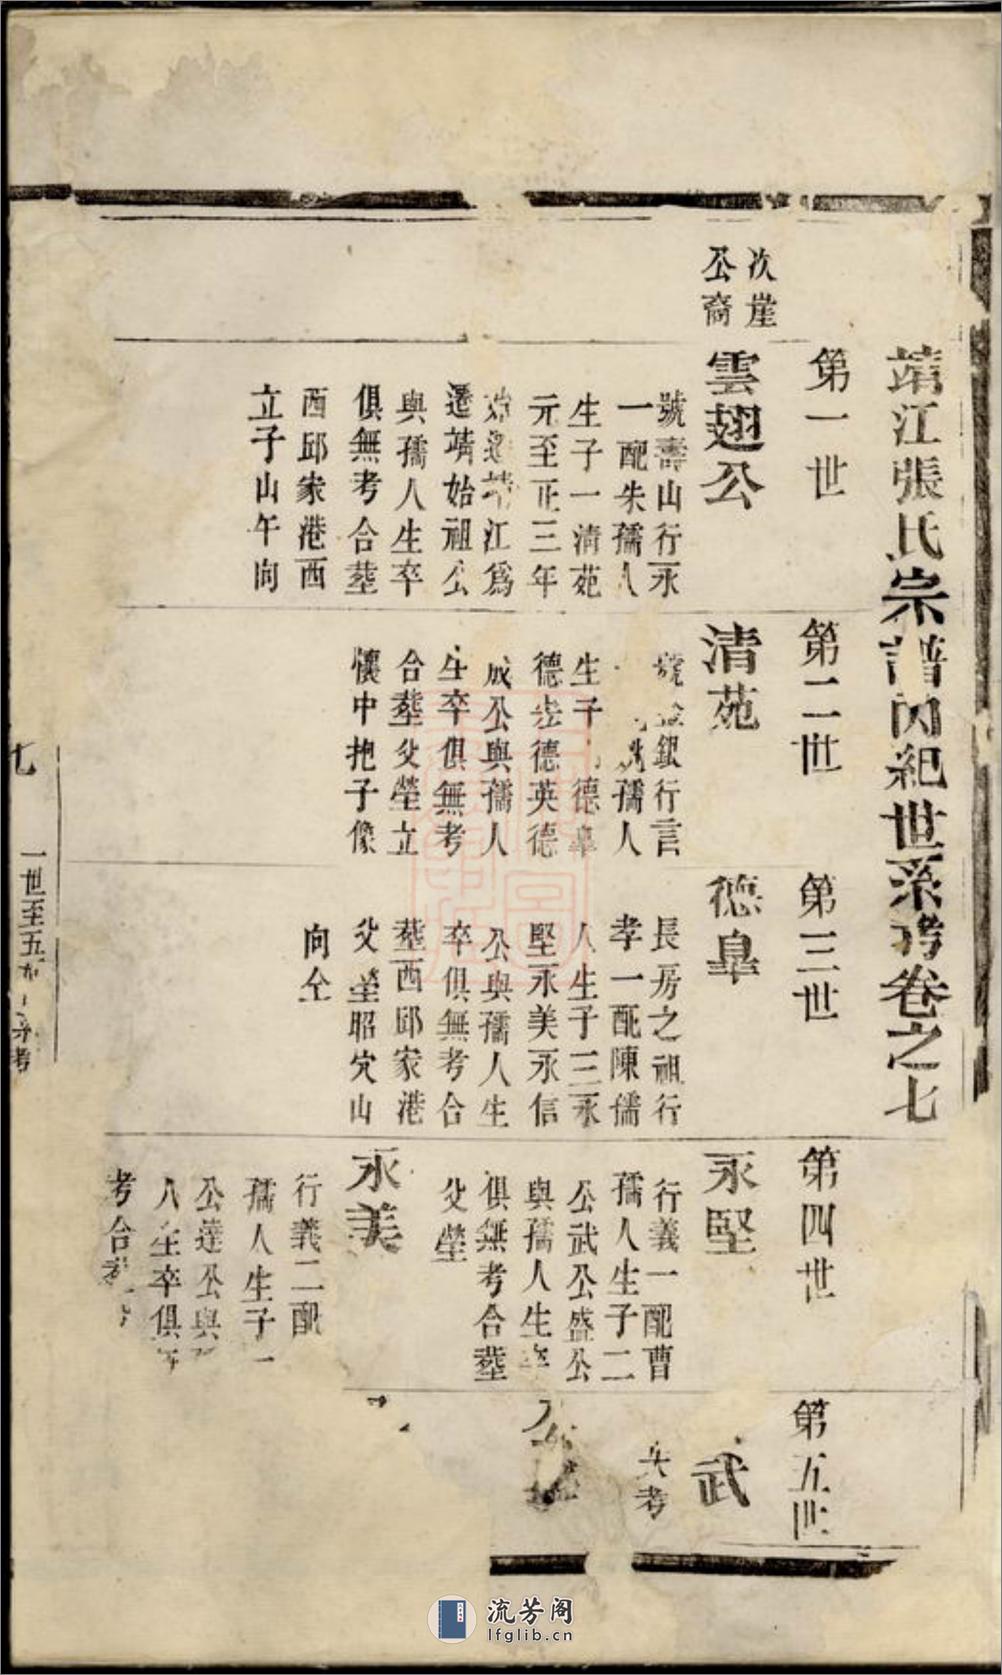 靖江張氏宗譜內紀世系考卷之七
第一世
第二世
第三世
第四世
第五世
次崖
公裔
雲翅公
號壽山行永
一配朱孺人
生子一清苑
元至正三年
始遷靖江爲
遷靖始祖公
與孺人生卒
俱無考合塟
西邱家港西
立子山午向
清苑
銀行言
孺人
生子 德臯
德崇德英德
成公與孺人
生卒俱無考
合塟父塋立
懷中抱子像
德臯
長房之祖行
孝一配陳孺
人生子三永
堅永美永信
公與孺人生
卒俱無考合
塟西邱家港
父塋昭穴山
向仝
永堅
行義一配曹
孺人生子二
公武公盛公
與孺人生卒
俱無考合塟
父塋
永美
行義二配
孺人生子一
公達公與
人生卒俱
考合塟
武
失考
七
一世至五世 系考
流芳阁
lfglib.cn